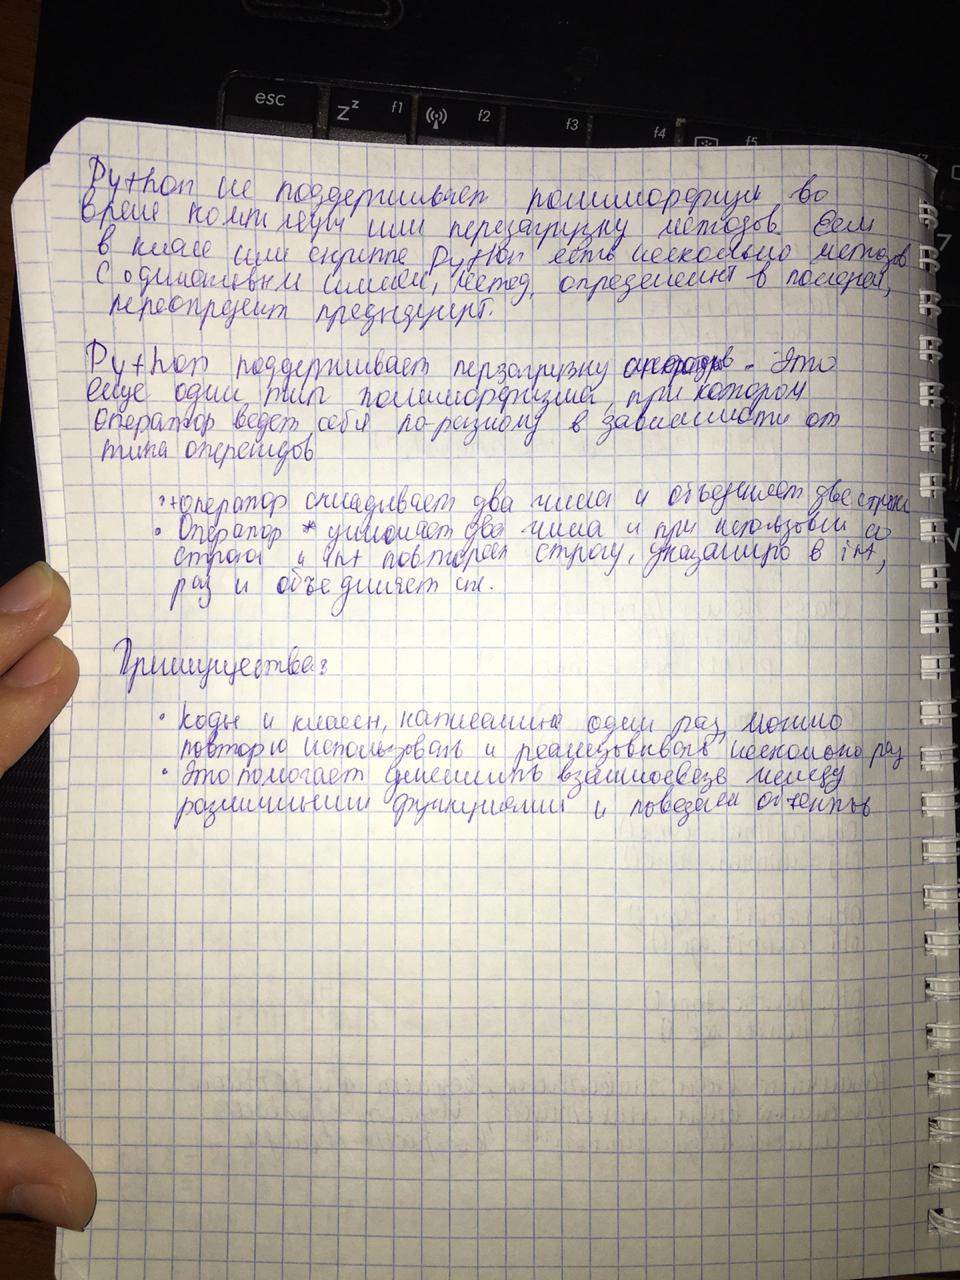 esc
zZ f1
f2
f3
f4
f5
Python не поддерживает полиморфизм во
время компиляции или перезагрузку методов. Если
в классе или скрипте Python есть несколько методов
с одинаковым именем, метод, определенный в последней,
переопределит предыдущий.
Python поддерживает перезагрузку операторов. Это
еще один тип полиморфизма, при котором
оператор ведет себя по-разному в зависимости от
типа операндов
·+оператор складывает два числа и объединяет две строки
· Оператор * умножает два числа и при использовании со
строкой и int повторяет строку, указанную в int,
раз и объединяет их.
Приимущества:
· Коды и классы, написанные один раз, можно
повторно использовать и реализовывать несколько раз
· Это помогает уменшить взаимосвязь между
различными функциями и